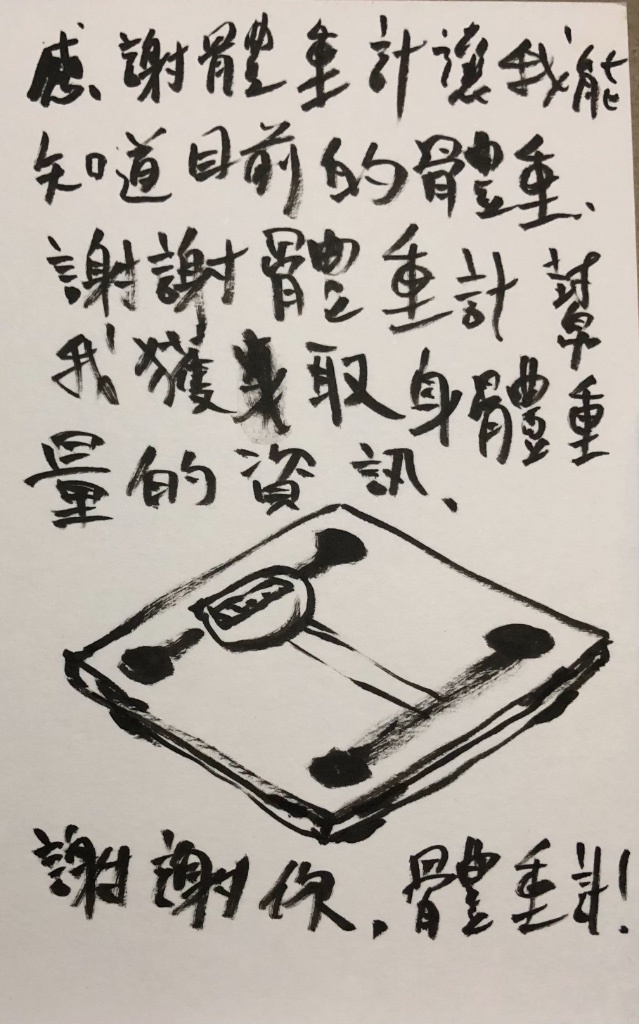 感謝體重計讓我能
知道目前的體重、
謝謝體重計幫
我獲取身體重
量的資訊、
謝謝你,體重計!